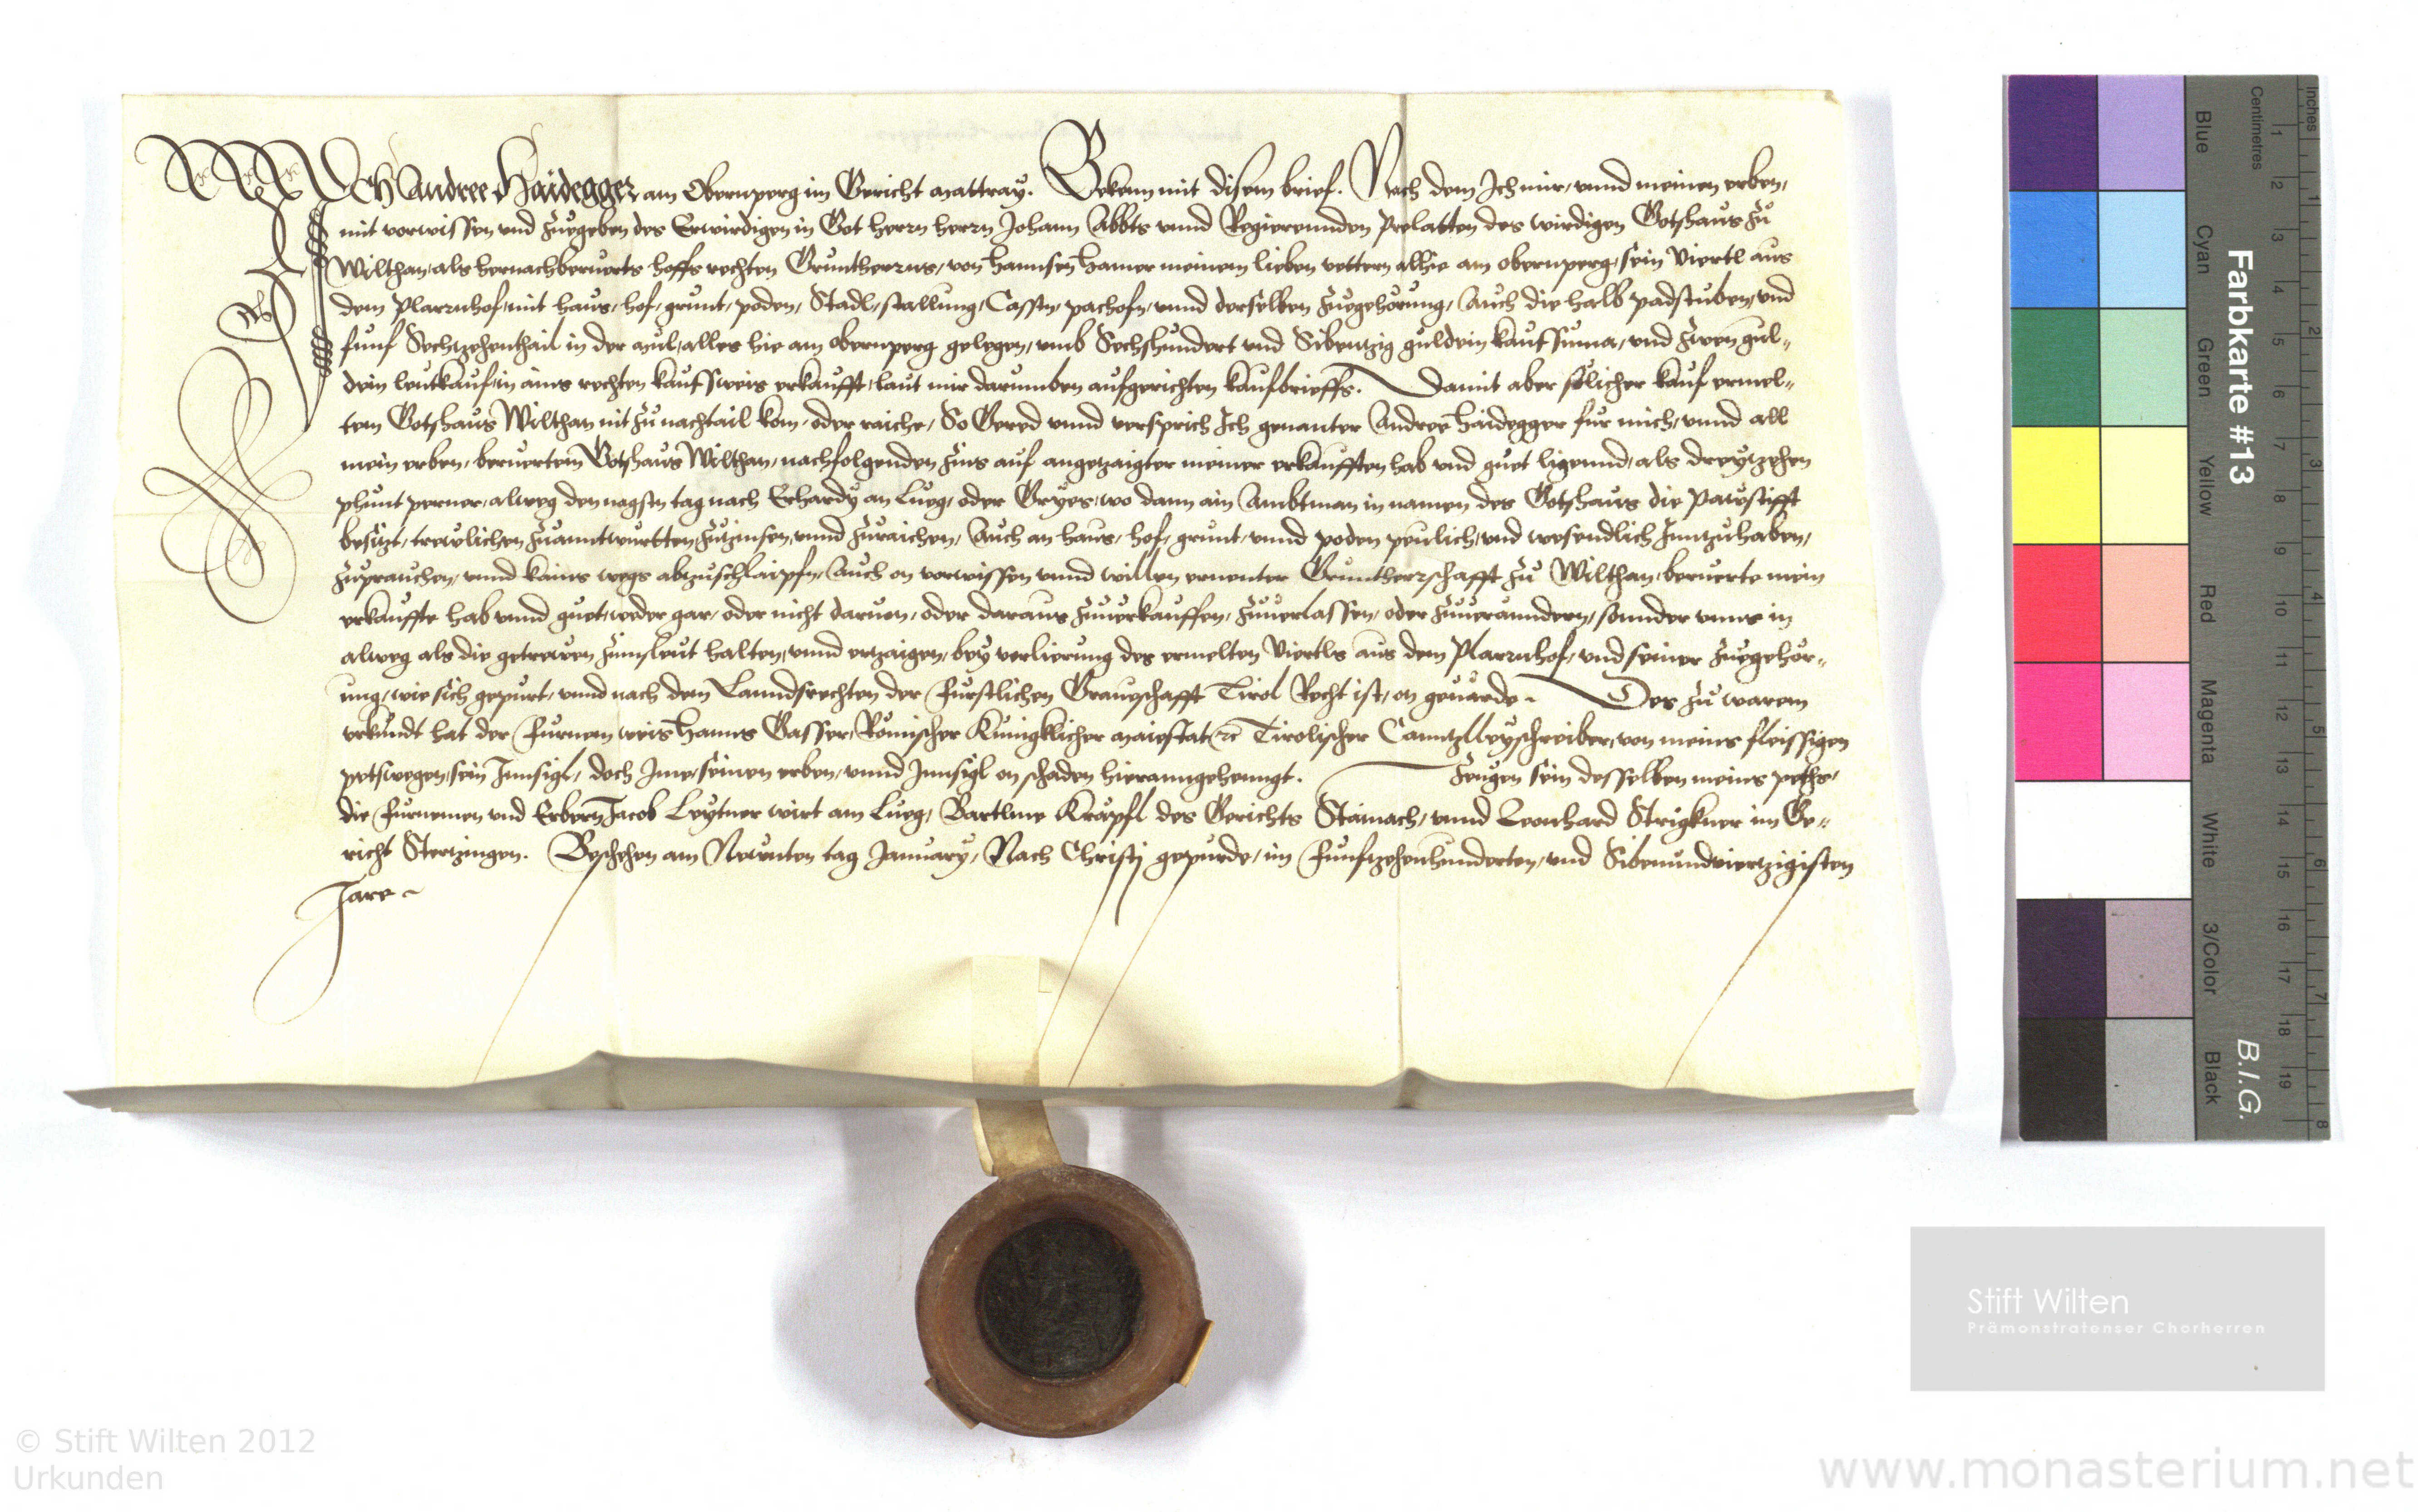 Ich Andree Haidegger am Obernperg im Gericht Mattray. Bekenn mit disem brief. Nach dem Ich mir, vnnd meinen erben,
mit vorwissen vnd zuegeben des Erwirdigen in Got herrn herrn Johann Abbts vnnd Regierennden Prelatten des wirdigen Gotshaus zu
Wilthan, als hernachberuerts hoffs rechten Gruntherrns, von Hannsen Hamer meinem lieben vettern alhie am obernperg, sein Viertl aus
dem Plarrnhof, mit haus, hof, grunt, poden, Stadl, stallung, Casstn, pachofn, vnnd derselben zuegehörung, Auch die halb padstuben, vnd
funf Sechtzehenthail in der Mul, alles hie am obernperg gelegen, vmb Sechshundert vnd Sibentzig guldein kauf Suma, vnd zwen gul„
dein leutkauf, in ains rechten kaufsweis erkaufft, laut mir darumben aufgerichten kaufbrieffs. Damit aber sölicher kauf ermel„
tem Gotshaus Wilthan nit zu nachtail kom, oder raiche, So Gered vnnd versprich Ich genanter Andree Haidegger fur mich, vnnd all
mein erben, beruertem Gotshaus Wilthan, nachfolgenden zins auf angetzaigter meiner erkaufften hab vnd guet ligennd, als dreytzehen
phunt perner, alweg den nagsten tag nach Erhardy am Lueg, oder Gryes, wo dann ain Ambtman in namen des Gotshaus die Pawstifft
besitzt, trewlichen zuanntwurtten, zutzinsen, vnnd zuraichen, Auch an haus, hof, grunt, vnnd poden peulich, vnd wesendlich Inntzuhaben,
zuprauchen, vnnd kains wegs abzuschlaipfn, Auch on vorwissen vnnd willen ernenter Gruntherrschafft zu Wilthan, beruerte mein
erkauffte hab vnnd guet, weder gar, oder nicht daruon, oder daraus zuuerkauffen, zuuerlassen, oder zuueranndern, sonnder vnns in
alweg als die getrewen zinnsleut halten, vnnd ertzaigen, bey verlierung des ermelten Viertls aus dem Plarrnhof, vnd seiner zuegehör„
ung, wie sich gepurt, vnnd nach dem Lanndsrechten der Furstlichen Graueschafft Tirol Recht ist, on geuärde ~ Des zu warem
vrkundt hat der Furnem weis Hanns Gasser, Römischer Kunigklicher Maiestat etc Tirolischer Canntzlleyschreiber, von meins fleissigen
petswegen, sein Innsigl, doch Ime, seinen erben, vnnd Innsigl on schaden hieranngehenngt. Zeugen sein desselben meins peths,
die Furnemen vnd Erbern Jacob Leytner wirt am Lueg, Bartlme Kräpfl des Gerichts Stainach, vnnd Leonhard Strigkner im Ge„
richt Stertzingen. Beschehen am Newnten tag January, Nach Christj gepurde, im Funftzehenhunderten, vnd Sibenundviertzigisten
Jare ~
Farbkarte #13
B.I.G.
Blue
Cyan
Green
Yellow
Red
Magenta
White
3/Color
Black
Centimetres
Inches
1 2 3 4 5 6 7 8 9 10 11 12 13 14 15 16 17 18 19
1 2 3 4 5 6 7 8
Stift Wilten
Prämonstratenser Chorherren
© Stift Wilten 2012
Urkunden
www.monasterium.net